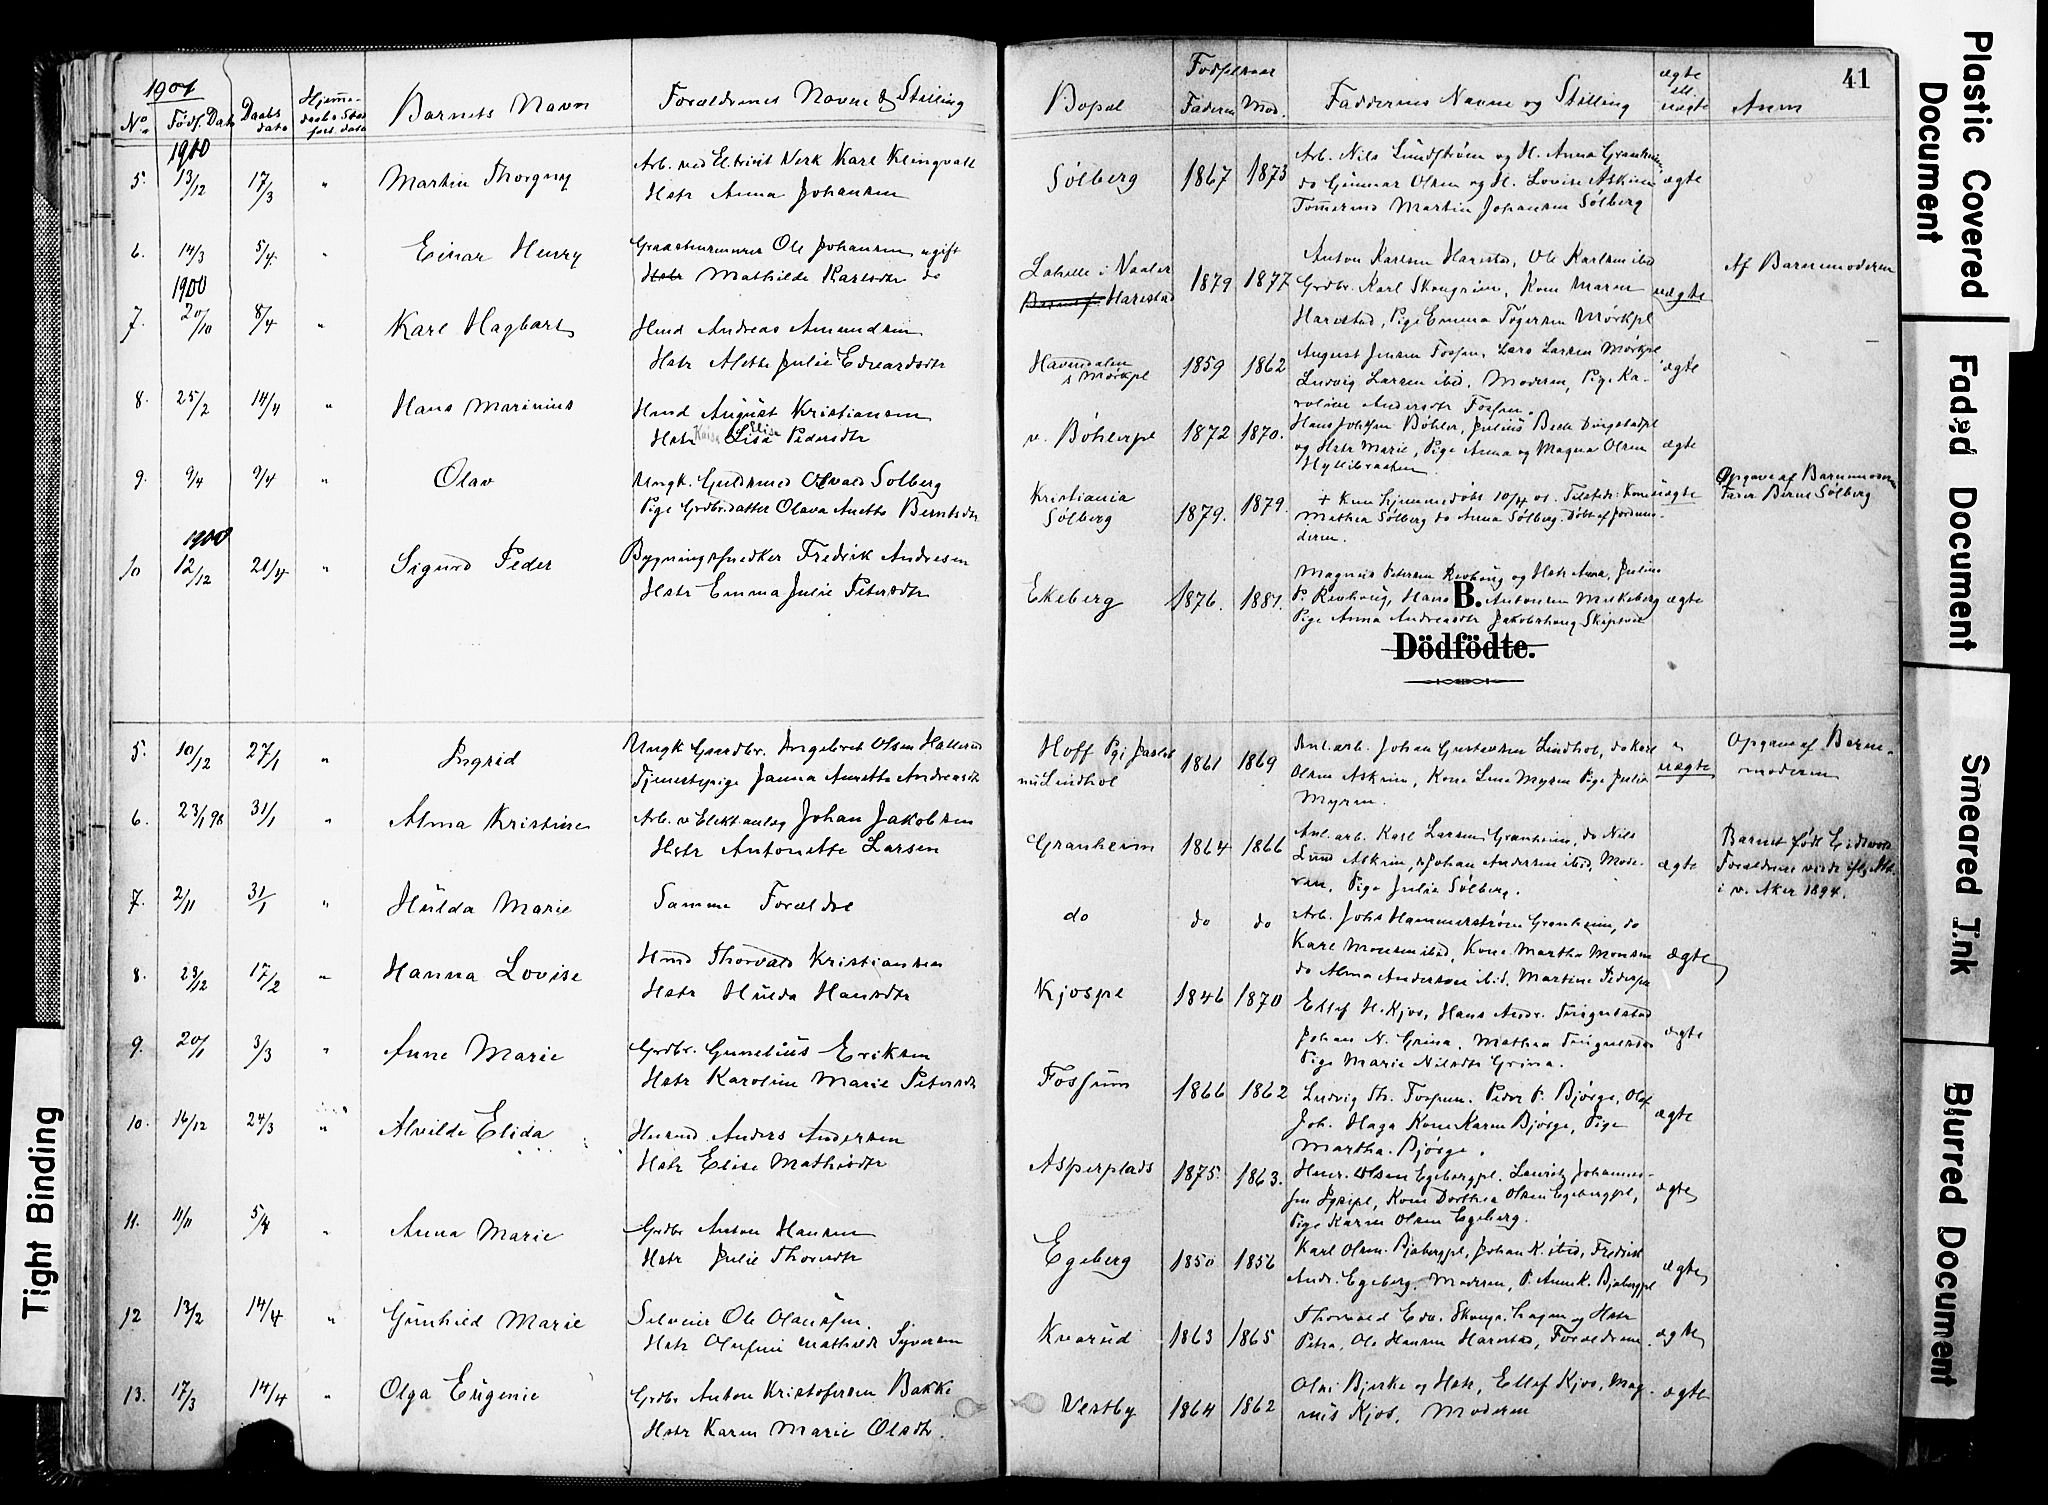 1901
No
Föds. Dato
Daabs dato
Hjemme-
daabs Stad
fæst. dato
Barnets Navn
Forældrenes Navne & Stilling
Bopæl
Fødselsaar
Faderen Mod.
Faddernes Navne og Stilling
ægte
ell.
uægte
Anm
41
1900
5. 13/12 17/3 " Martin Thorgny
Arb. ved El.trisit Verk Karl Klingvall
Hstr Anna Johansen
Sölberg 1867 1873
Arb. Nils Lundström og H. Anna Granheim
do Gunnar Olsen og H. Lovise Askim
Tømermd Martin Johansen Sölberg
ægte
6. 14/3 5/4 " Einar Henry
Ole Johansen, ugift
Hstr Mathilde Karlsdtr do
i Vaaler
Harestad
1879 1877
Anton Karlsen Harestad, Ole Karlsen ibid
Grdbr. Karl Skougrim, Kone Maren
Harestad, Pige Emma Mørkpl
uægte
Af Barnemoderen
1900
7. 20/10 8/4 " Karl Hagbart
Hmd Andreas Amundsen
Hstr Alette Julie Edvardsdtr
Havnedalen
u Mørkpl
1859 1862
August Jensen Fossum, Lars Larsen Mørkpl
Ludvig Larsen ibid, Moderen, Pige Ka-
roline Andersdtr Fossum.
ægte
8. 25/2 14/4 " Hans Marinius
Hmd August Kristiansen
Hstr Lise Pedersdtr
v. Böhlerpl 1872 1870.
Hans Johsen Böhler, Julius Beck
og Hstr Marie, Pige Anna og Magna Olsen
Hyllibraaten
ægte
9. 9/4 9/4 " Olav
Ungk. Guldsmed Osvald Solberg
Pige Grdbr.datter Olava Anette Berntsdtr
Kristiania
Sölberg
1879. 1879.
+ Kun hjemmedöbt 10/4 01. Tilstede: Kone
Mathea Sölberg do Anna Sölberg. Döbt af Jordmo-
deren.
uægte
Opgave af Barnemoderen
Farer Bernt Sölberg
1900
10 12/12 21/4 " Sigurd Peder
Bygningssnedker Fredrik Andresen
Hstr Emma Julie Petersdtr
Ekeberg 1876. 1881.
Magnus Petersen Revhoug og Hstr Anna, Julius
P. Revhoug, Hans Antonsen Mekeberg
Pige Anna Andreasdtr Jakobshoug Skiptvet
ægte
B.
Dödfödte.
5. 10/12 27/1 " Ingrid
Ungk Gaardbr. Ingebret Olsen Hallerud
Tjenestepige Janna Anette Andreasdtr
Hoff Pgj
nu Lindhol
1861 1869
Anl.arb. Johan Gustavsen Lindhol, do Karl
Olsen Askim, Kone Lina Myren Pige Julia
Myren.
uægte
Opgave af Barne-
moderen
6. 23/1 98 31/1 " Alma Kristine
Arb. v Elekt.anlæg Johan Jakobsen
Hstr Antonette Larsen
Granheim 1864 1866
Anl. arb. Karl Larsen Granheim, do Nils
Lund Askim, Johan Andersen ibid, Mode-
ren, Pige Julia Sölberg.
ægte
Barnet født Eidsvold
Forældrene viede iflg Att.
i v. Aker 1894.
7. 2/11 31/1 " Hulda Marie
Samme Forældre
do do do
Arb. Johs Hammerström Granheim, do
Karl Monsen ibid, Kone Martha Monsen
do Alma Andersen ibid, Martine
ægte
8. 29/12 17/2 " Hanna Lovise
Hmd Thorvald Kristiansen
Hstr Hulda Hansdtr
Kjospl 1846 1870
Ellef H. Kjos, Hans Andr. Tingulstad
Johan N. Grina, Mathea Tingulstad
Pige Marie Nilsdtr Grina.
ægte
9. 20/1 3/3 " Anne Marie
Grdbr. Gunelius Eriksen
Hstr Karoline Marie Petersdtr
Fossum 1866 1862
Ludvig Th. Fossum. Peder P. Bjørge, Olaf
Joh. Haga Kone Karen Bjørge, Pige
Martha Bjørge.
ægte
10. 16/12 24/3 " Alvilde Elida
Husmd Anders Andersen
Hstr Elise Mathisdtr
Asperplads 1875. 1863.
Henr. Olsen Egebergpl. Lauritz Johannes-
sen, Kone Dorthea Olsen Egebergpl,
Pige Karen Olsen Egeberg.
ægte
11. 11/11 5/4 " Anna Marie
Grdbr Anton Hansen
Hstr Julie Thorsdtr
Egeberg 1850 1856
Karl Olsen Bjabergpl, Johan K. ibid, Fredrik
Andr. Egeberg, Moderen, P. Anne K. Bjabergpl
ægte
12 13/2 14/4 " Gunhild Marie
Selveier Ole Olaussen.
Hstr Olufine Mathilde Syversen
Kvarud 1863 1865
Thorvald Edv. Skouge, og Hstr
Petra, Ole Hansen Harestad, Forældrene
ægte
13. 17/3 14/4 " Olga Eugenie
Grdbr Anton Kristofersen Bakke
Hstr Karen Marie Olsdtr.
Vestby 1864 1862
Olai Bjerke og Hstr, Ellef Kjos, Mag-
nus Kjos, Moderen
ægte
Tight Binding
Plastic Covered
Document
Faded Document
Smeared Ink
Blurred Document